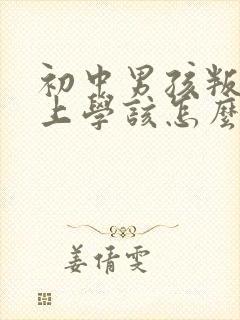 初中男孩叛
上學該怎麼
姜倩雯